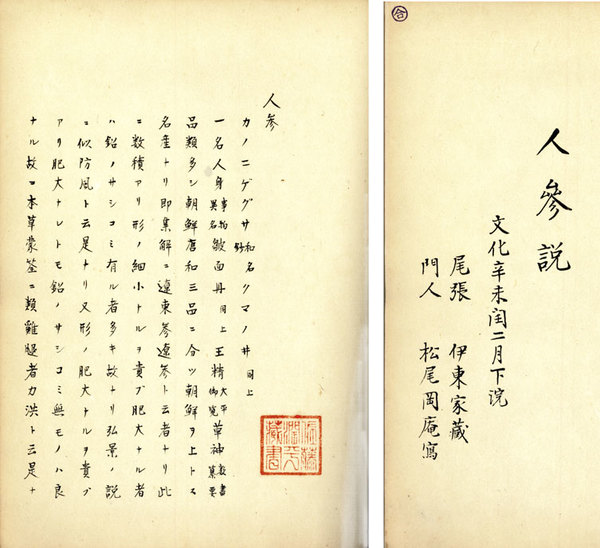 合
人參説
文化辛未閏二月下浣
尾張 伊東家藏
門人 松尾岡庵寫
人参
カノニゲグサ 和名鈔 クマノ井 同上
一名人身 事物異名 皺面丹 同上 玉精 大平御覧 草神
品類多シ朝鮮唐和三品ニ合ツ朝鮮ヲ上トス
名産ナリ即集解ニ遼東参遼参ト云者ナリ此
ニ数積アリ形ノ細小ナルヲ貴ブ肥大ナル者
ハ鉛ノサシコミ有ル者多キ故ナリ弘景ノ説
ニ似防風ト云是ナリ又形ノ肥大ナルヲ貴ブ
アリ肥大ナレトモ鉛ノサシコミ無モノハ良
ナル故コ本草蒙筌ニ類雞腿者力洪ト云是ナ